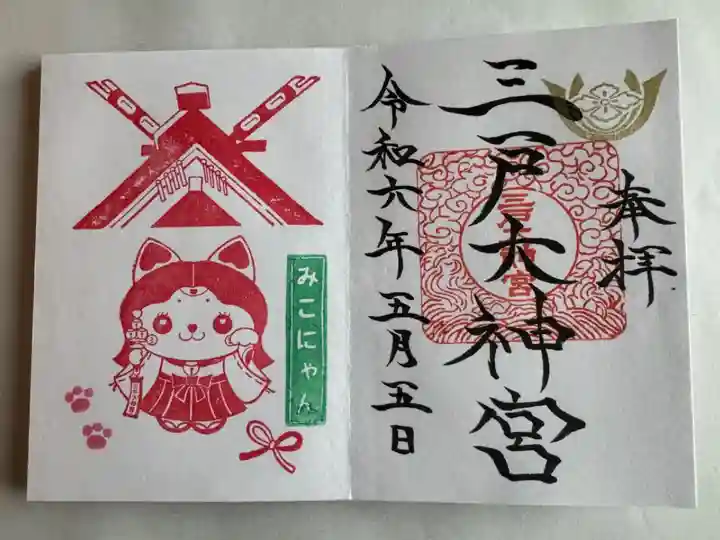 奉拝
三戸大神宮
三戸大神宮
令和六年五月五日
みこにゃん